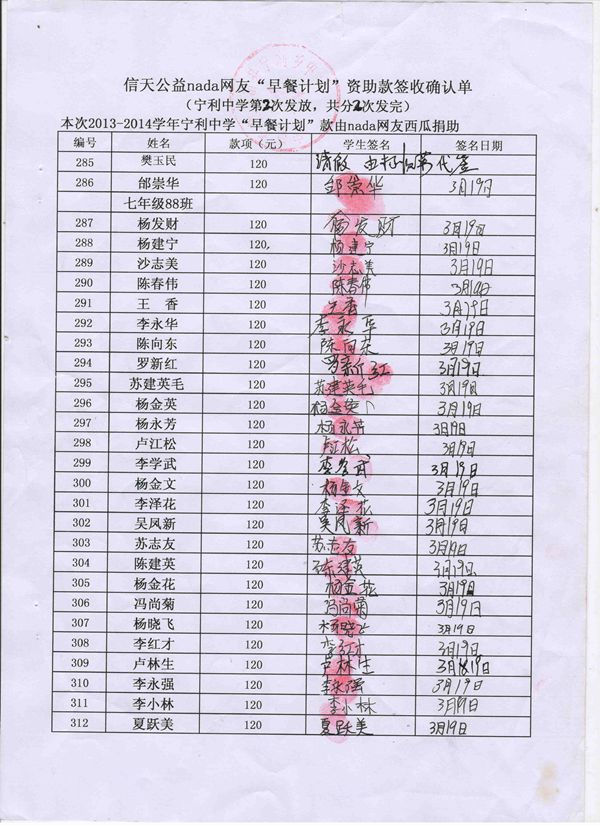 信天公益nada网友“早餐计划”资助款签收确认单
（宁利中学第2次发放，共分2次发完）
本次2013-2014学年宁利中学“早餐计划”款由nada网友西瓜捐助
编号 姓名 款项（元） 学生签名 签名日期
285 樊玉民 120 代签
286 邰崇华 120 邰崇华 3月19日
七年级88班
287 杨发财 120 杨发财 3月19日
288 杨建宁 120. 杨建宁 3月19日
289 沙志美 120 沙志美 3月19日
290 陈春伟 120 陈春伟 3月19日
291 王 香 120 王香 3月19日
292 李永华 120 李永华 3月19日
293 陈向东 120 陈向东 3月19日
294 罗新红 120 罗新红 3月19日
295 苏建英毛 120 苏建英毛 3月19日
296 杨金英 120 杨金英 3月19日
297 杨永芳 120 杨永芳 3月19日
298 卢江松 120 卢江松 3月19日
299 李学武 120 李学武 3月19日
300 杨金文 120 杨金文 3月19日
301 李泽花 120 李泽花 3月19日
302 吴凤新 120 吴凤新 3月19日
303 苏志友 120 苏志友 3月19日
304 陈建英 120 陈建英 3月19日
305 杨金花 120 杨金花 3月19日
306 冯尚菊 120 冯尚菊 3月19日
307 杨晓飞 120 杨晓飞 3月19日
308 李红才 120 李红才 3月19日
309 卢林生 120 卢林生 3月19日
310 李永强 120 李永强 3月19日
311 李小林 120 李小林 3月19日
312 夏跃美 120 夏跃美 3月19日